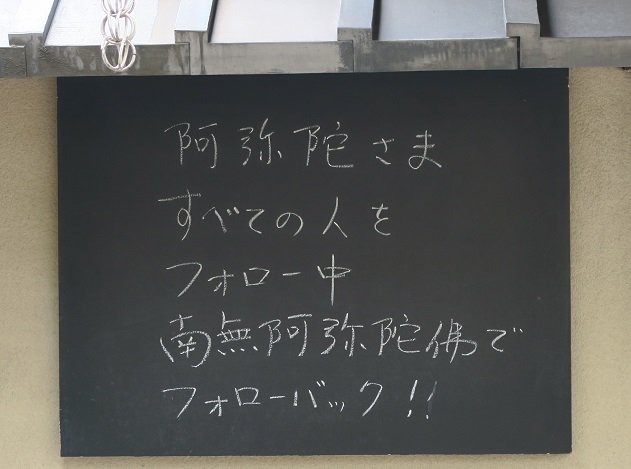 阿弥陀さま
すべての人を
フォロー中
南無阿弥陀佛で
フォローバック!!